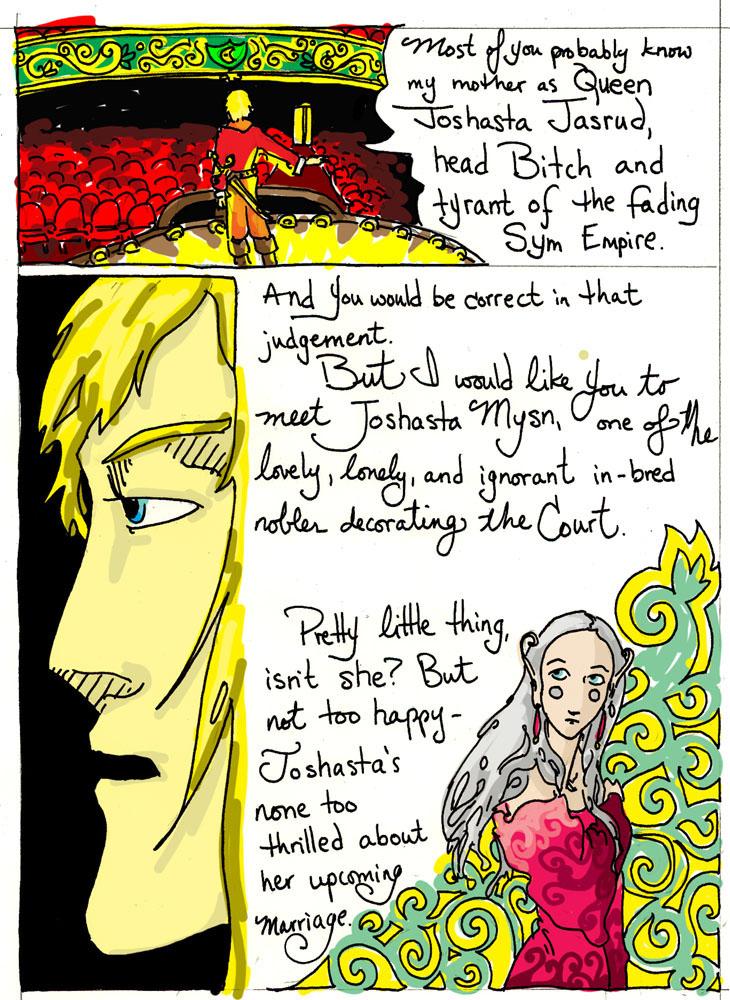 Most of you probably know
my mother as Queen
Joshasta Jasrud,
head Bitch and
tyrant of the fading
Sym Empire.
And you would be correct in that
judgement.
But I would like you to
meet Joshasta Mysn, one of the
lovely, lonely, and ignorant in-bred
nobles decorating the Court.
Pretty little thing,
isn't she? But
not too happy-
Joshasta's
none too
thrilled about
her upcoming
marriage.